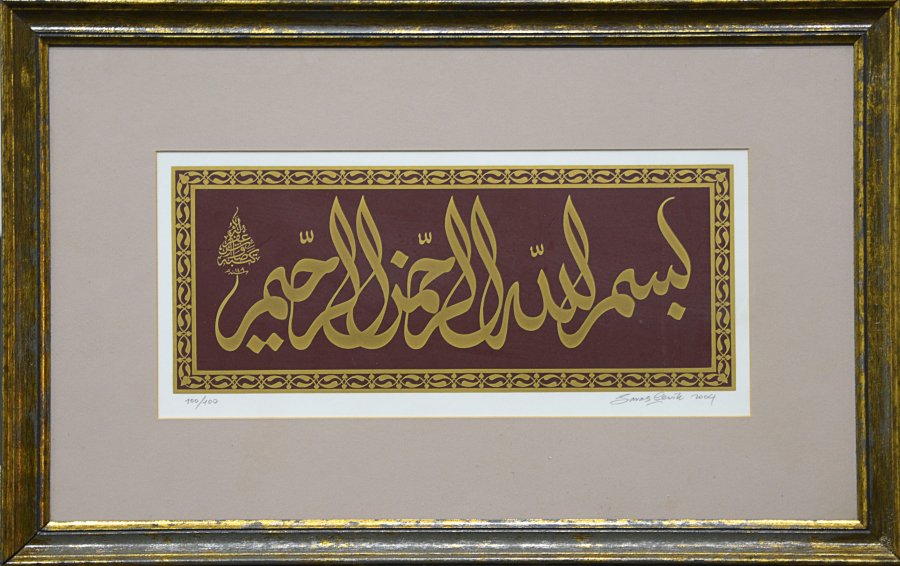 بسم الله الرحمن الرحيم
100/100 Savaş Çevik 2004